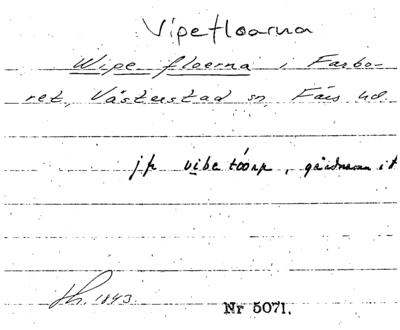 Vipefloarna
Wipe floerna i Farbo-
ret, Västerstad sn, Färs hd.
jfr vibe tóórp, gårdnamn i d
1843.
Nr 5071.